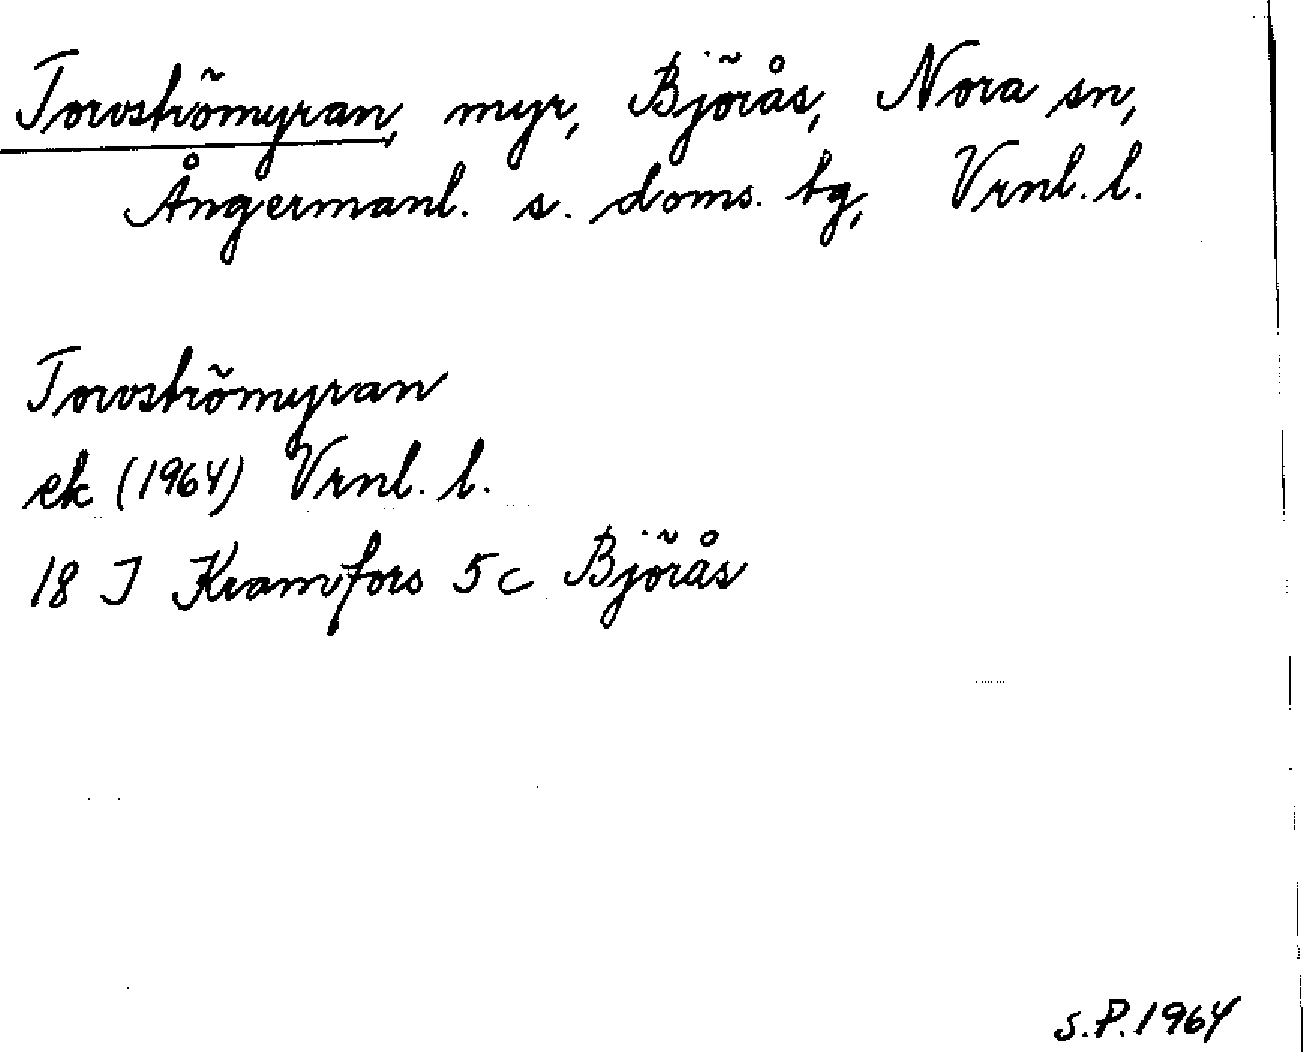 Torvströmyran, myr, Björås, Nora sn,
Ångermanl. s. doms. tg, Vrnl. l.
Torvströmyran
ek (1964) Vrnl. l.
18 I Kramfors 5c Björås
S.P. 1964